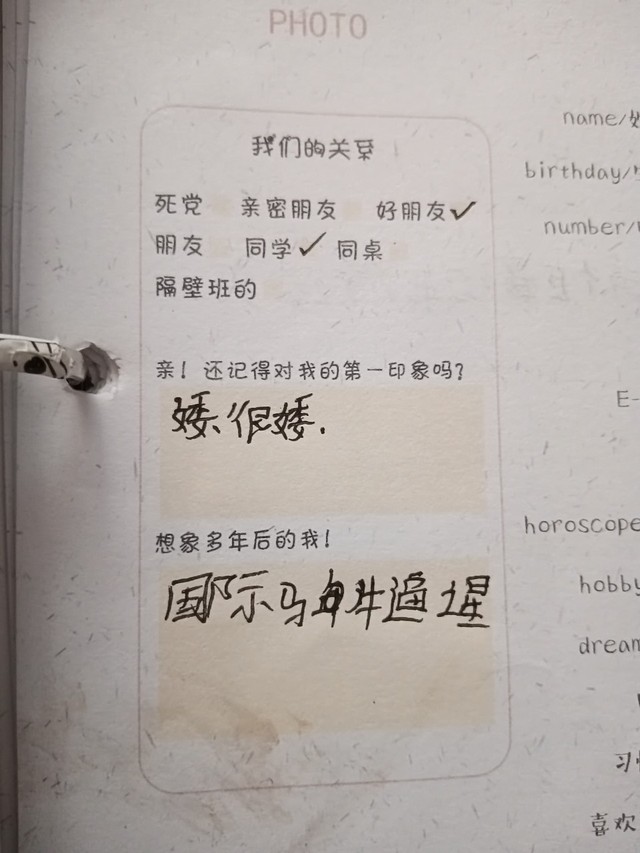 PHOTO
我们的关系
死党 亲密朋友 好朋友✓
朋友 同学✓ 同桌
隔壁班的
亲！还记得对我的第一印象吗？
矮、很矮.
想象多年后的我！
国际马牛逼
name/
birthday/
number/
E-
horoscope
hobby
dream
习
喜欢